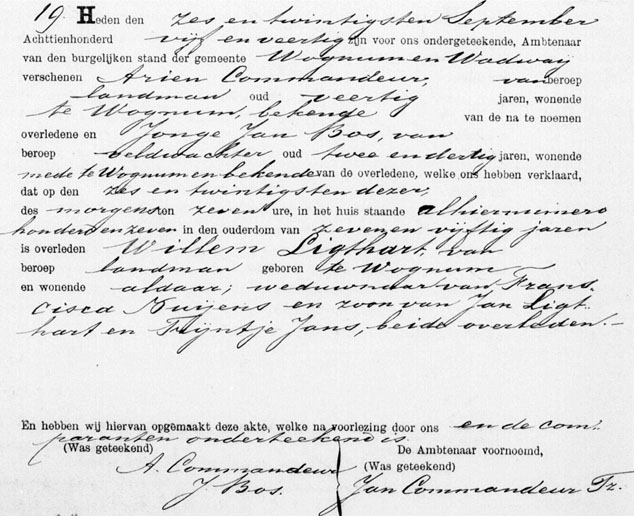 19. Heden den zes en twintigsten September
Achttienhonderd vijf en veertig zijn voor ons ondergeteekende, Ambtenaar
van den burgelijken stand der gemeente Wognum en Wadway
verschenen Arien Commandeur, van beroep
landman oud veertig jaren, wonende
te Wognum, bekende van de na te noemen
overledene en Jonge Jan Bos, van
beroep veldwachter oud twee en dertig jaren, wonende
mede te Wognum en bekende van de overledene, welke ons hebben verklaard,
dat op den zes en twintigsten dezer,
des morgens ten zeven ure, in het huis staande alhier numero
honderd en zeven in den ouderdom van zeven en vijftig jaren
is overleden Willem Ligthart, van
beroep landman geboren te Wognum
en wonende aldaar; weduwnaar van Frans-
cisca Nuijens en zoon van Jan Ligt-
hart en Trijntje Jans, beide overleden.—
En hebben wij hiervan opgemaakt deze akte, welke na voorlezing door ons en de com-
paranten onderteekend is.
(Was geteekend) De Ambtenaar voornoemd,
A. Commandeur (Was geteekend)
J Bos. Jan Commandeur Tz.